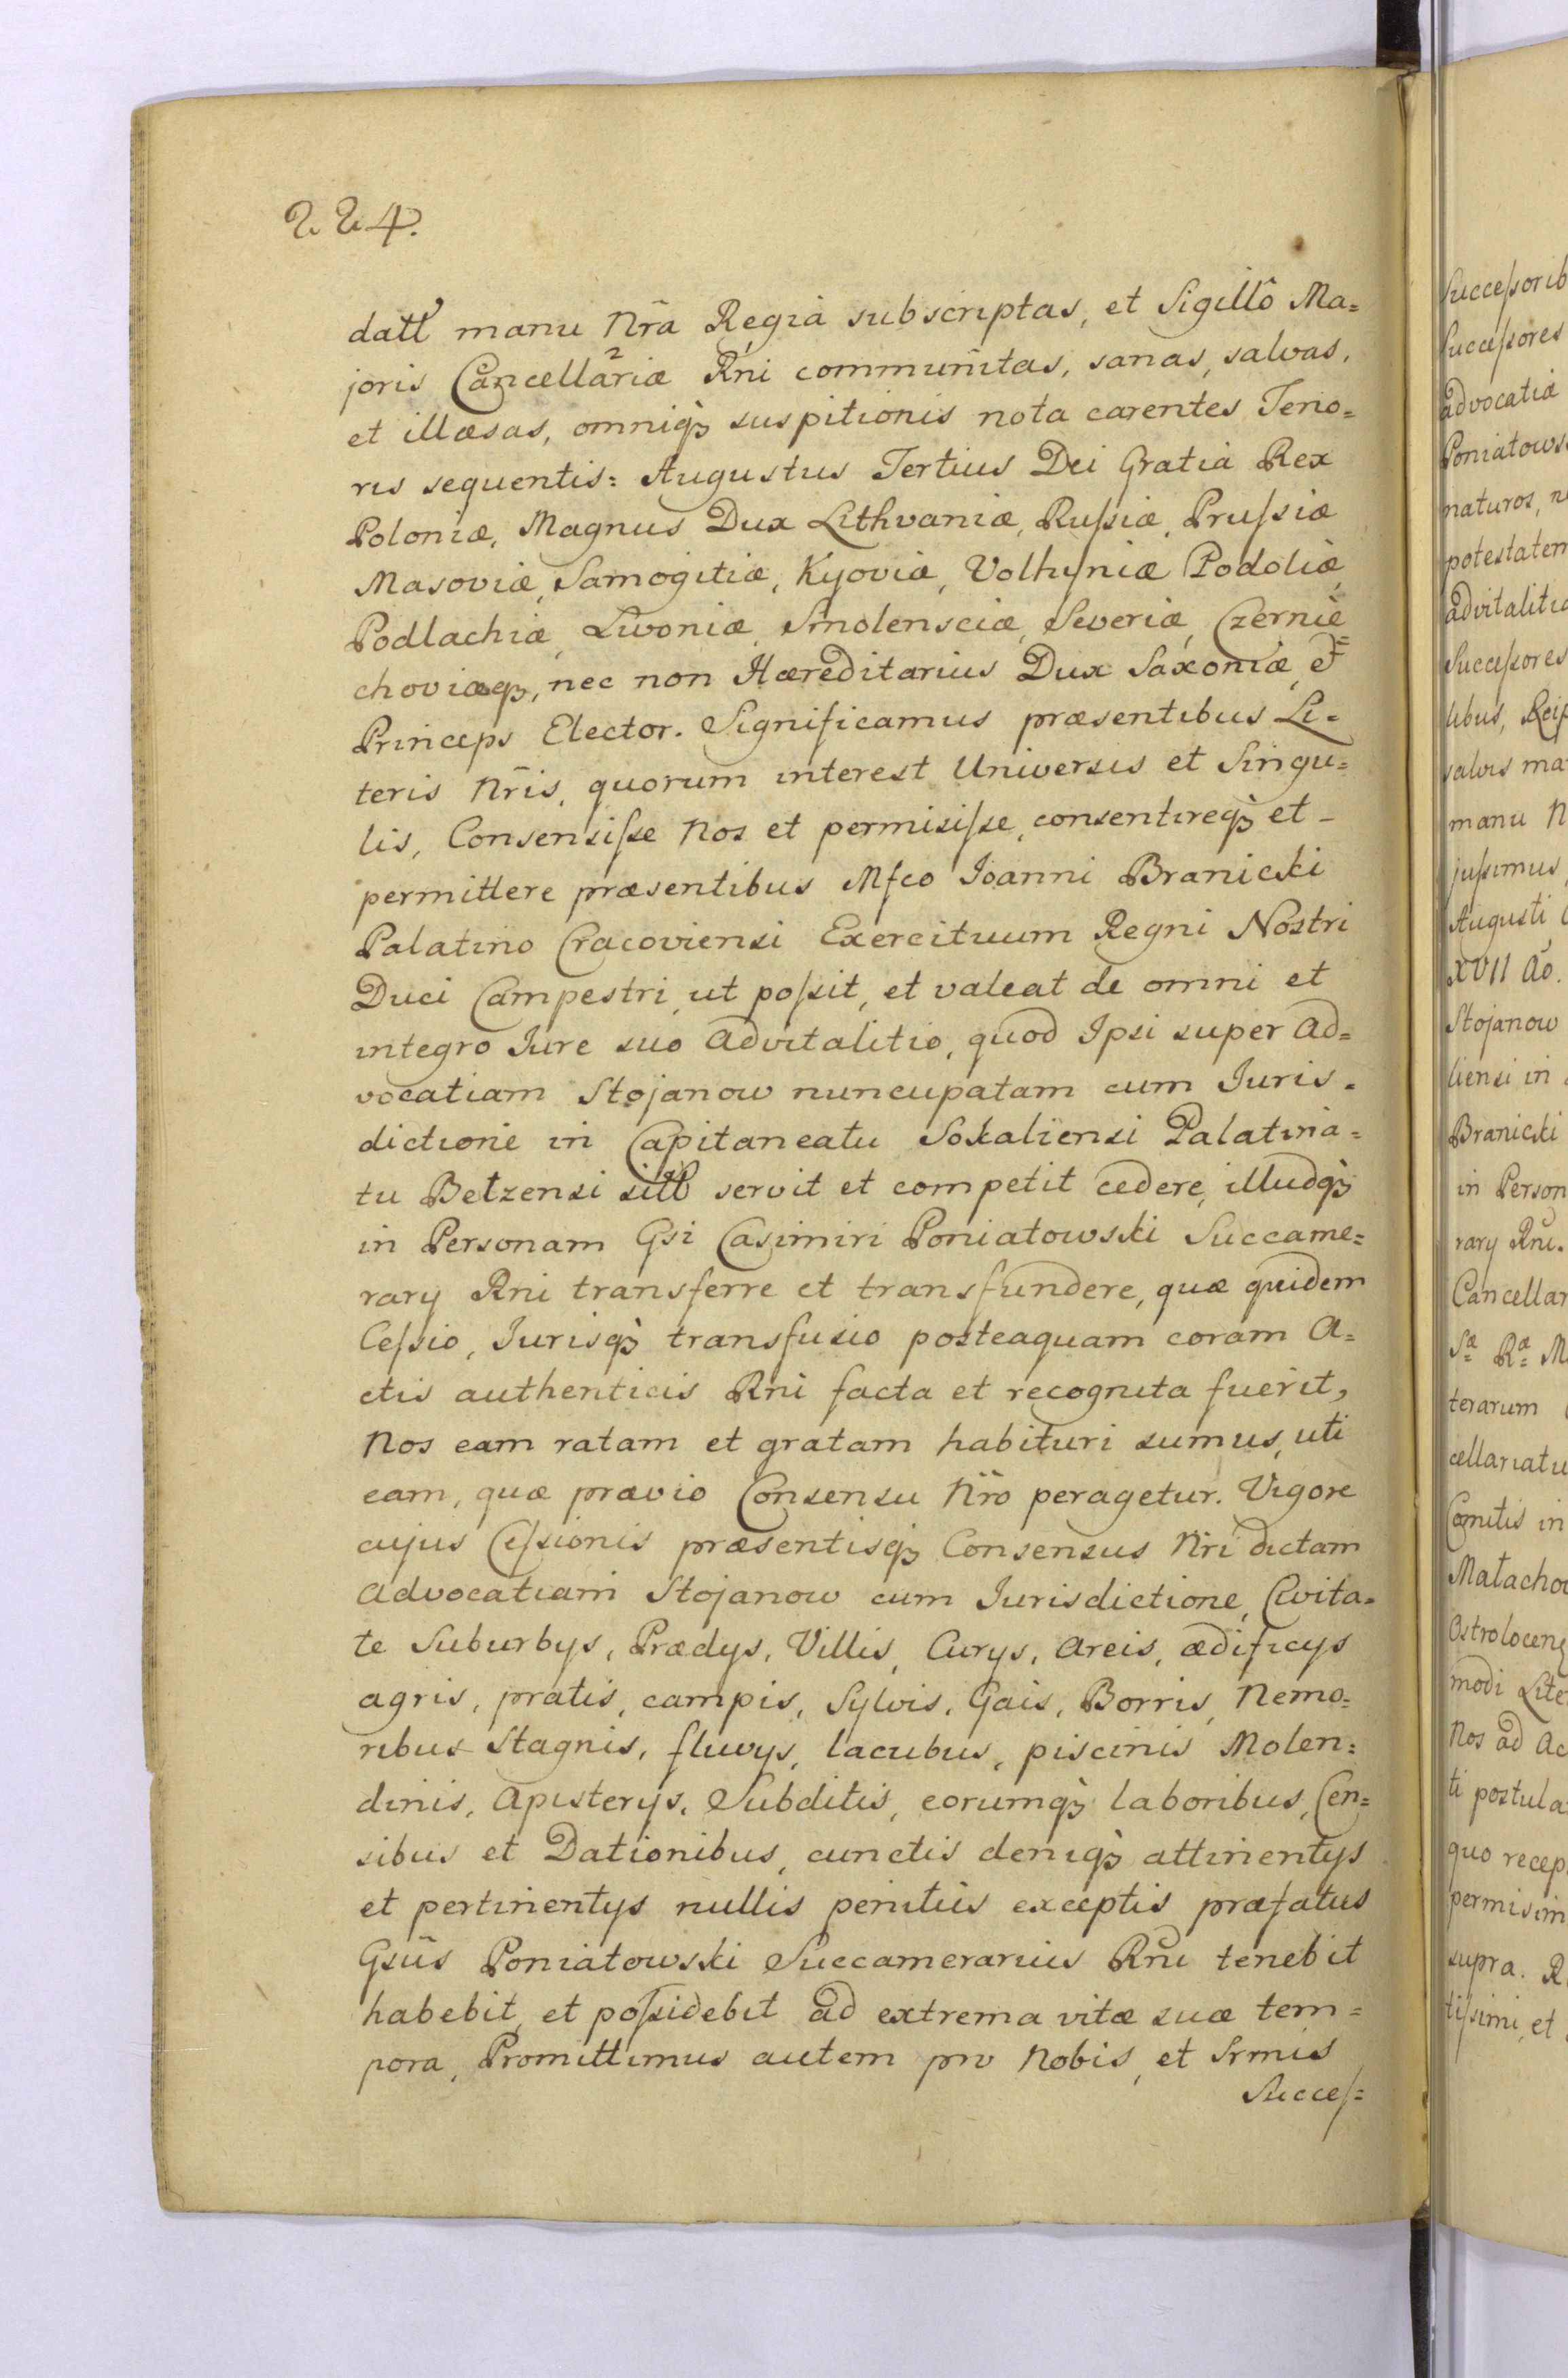 224.
datt manu Nrã Regià subscriptas, et Sigillô Ma=
joris Cancellariæ Rni communitas, sanas, salvas,
et illæsas, omniq3 suspitionis nota carentes Teno=
ris sequentis: Augustus Tertius Dei Gratià Rex
Poloniæ, Magnus Dux Lithvaniæ, Ruſsiæ, Pruſsiæ
Masoviæ, Samogitiæ, Kyoviæ, Volhyniæ Podoliæ,
Podlachiæ, Livoniæ, Smolensciæ, Severiæ, Czernie=
choviæq3, nec non Hæreditarius Dux Saxoniæ, et
Princeps Elector. Significamus præsentibus Li=
teris Nr̃is, quorum interest Universis et Singu=
lis, Consensiſse Nos et permisiſse, consentireq3 et -
permittere præsentibus Mfco Ioanni Branicki
Palatino Cracoviensi Exercituum Regni Nostri
Duci Campestri, ut poſsit, et valeat de omni et
integro Iure suo advitalitio, quod Ipsi super Ad=
vocatiam Stojanow nuncupatam cum Iuris=
dictione in Capitaneatu Sokaliensi Palatina=
tu Betzensi sitt servit et competit cedere, illudq3
in Personam Gsi Casimiri Poniatowski Succame=
rary Rni transferre et transfundere, quæ quidem
Ceſsio, Iurisq3 transfusio posteaquam coram A=
ctis authenticis Rni facta et recognita fuerit,
Nos eam ratam et gratam habituri sumus, uti
eam, quæ prævio Consensu Nr̃o peragetur. Vigore
cujus Ceſsionis præsentisq3 Consensus Nri dictam
Advocatiam Stojanow cum Iurisdictione, Civita=
te Suburbys, Prædys, Villis, Curys, Areis, ædificys
agris, pratis, campis, Sylvis, Gais, Borris, Nemo=
ribus Stagnis, fluvys, lacubus, piscinis Molen=
dinis, Apisterys, Subditis, eorumq3 laboribus, Cen=
sibus et Dationibus, cunctis deniq3 attinentys
et pertinentys nullis penitùs exceptis præfatus
Gsus Poniatowski Succamerarius Rni tenebit
habebit, et poſsidebit ad extrema vitæ suæ tem=
pora, Promittimus autem pro Nobis, et Srmis
Succeſ=
Succeſsorib
Succeſsores
advocatiæ
Poniatows
naturos, n
potestatem
advitalitia
Succeſsores
libus, Reip
salvis ma
manu N
juſsimus,
Augusti
XVII Ao.
Stojanow
liensi in
Branicki
in Person
rary Rni.
Cancellar
Sæ Ræ M
terarum
cellariatu
Comitis in
Matacho
Ostrolocen
modi Lite
Nos ad Ac
ti postula
quo recep
permisim
supra. R
tiſsimi, et